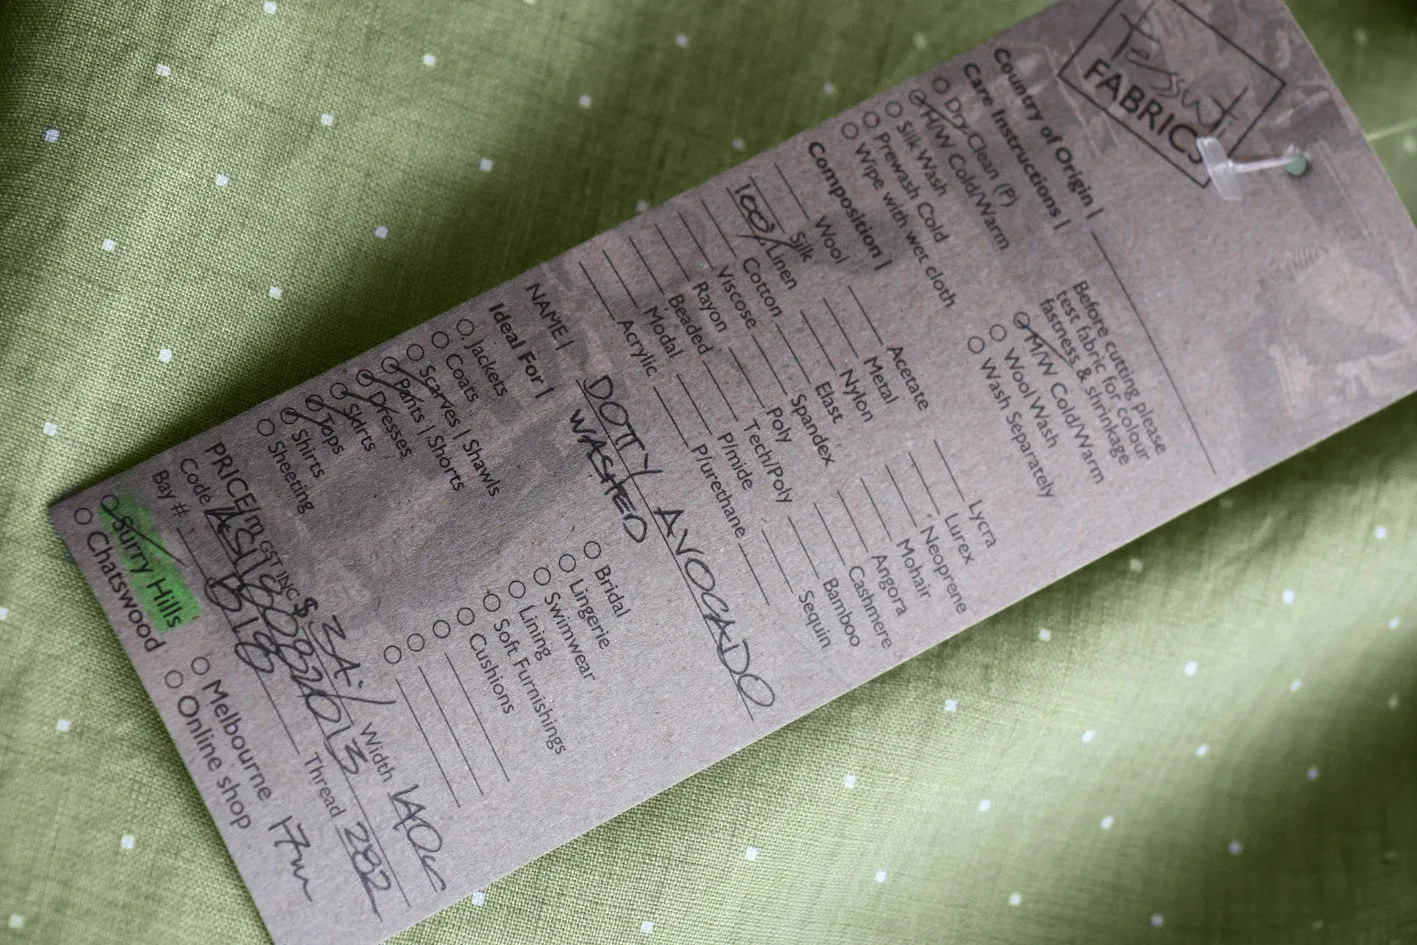 Tessuti
FABRICS
Country of Origin |
Care Instructions |
Dry-Clean (P)
H/W Cold/Warm
Silk Wash
Prewash Cold
Wipe with wet cloth
Before cutting please
test fabric for colour
fastness & shrinkage
M/W Cold/Warm
Wool Wash
Wash Separately
Composition |
Wool
Silk
100% Linen
Cotton
Viscose
Rayon
Beaded
Modal
Acrylic
Acetate
Metal
Nylon
Elast
Spandex
Poly
Tech/Poly
P/mide
P/urethane
Lycra
Lurex
Neoprene
Mohair
Angora
Cashmere
Bamboo
Sequin
NAME | DOTTY AVOCADO
WASHED
Ideal For |
Jackets
Coats
Scarves | Shawls
Pants | Shorts
Dresses
Skirts
Tops
Shirts
Sheeting
Bridal
Lingerie
Swimwear
Lining
Soft Furnishings
Cushions
PRICE/m GST INC $ Width
Code Thread 2882
Bay #
Surry Hills
Chatswood
Melbourne
Online shop